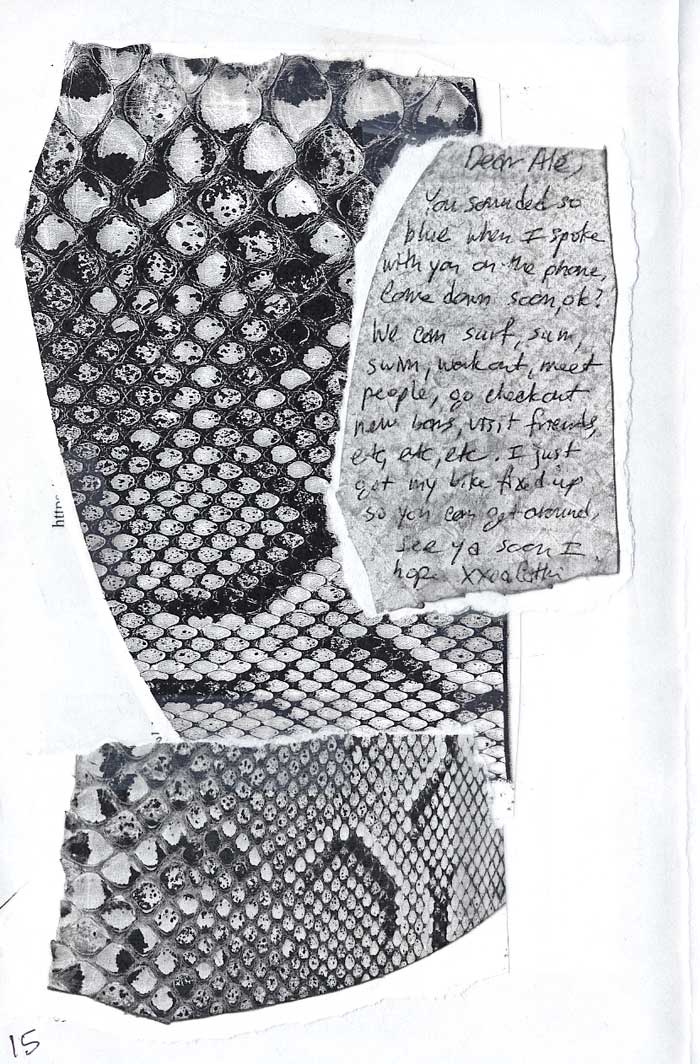 Dear Ale,
You sounded so
blue when I spoke
with you on the phone,
Come down soon, ok?
We can surf, sun,
swim, workout, meet
people, go checkout
new bars, visit friends,
etc, etc, etc. I just
got my bike fixed up
so you can get around,
see ya soon I
hope xxoo
http
15